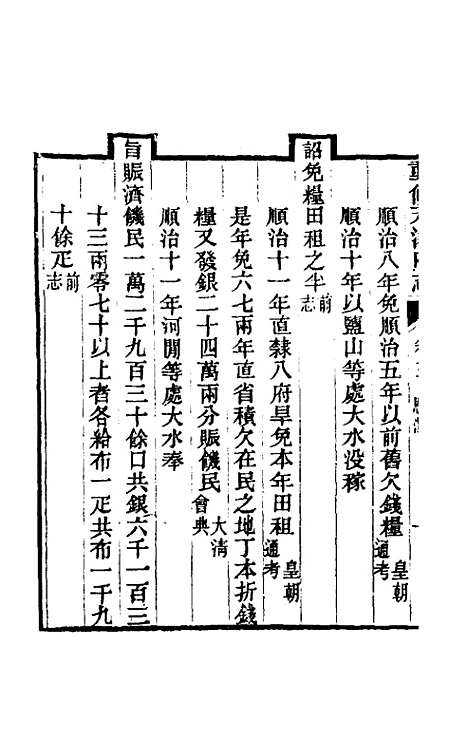 順治八年免順治五年以前舊欠錢糧皇朝通考
順治十年以鹽山等處大水没稼
詔免糧田租之半前志
順治十一年直隸八府旱免本年田租皇朝通考
是年免六七兩年直省積欠在民之地丁本折錢
糧又發銀二十四萬兩分賑饑民大清會典
順治十一年河閒等處大水奉
旨賑濟饑民一萬二千九百三十餘口共銀六千一百三
十三兩零七十以上者各給布一疋共布一千九
十餘疋前志